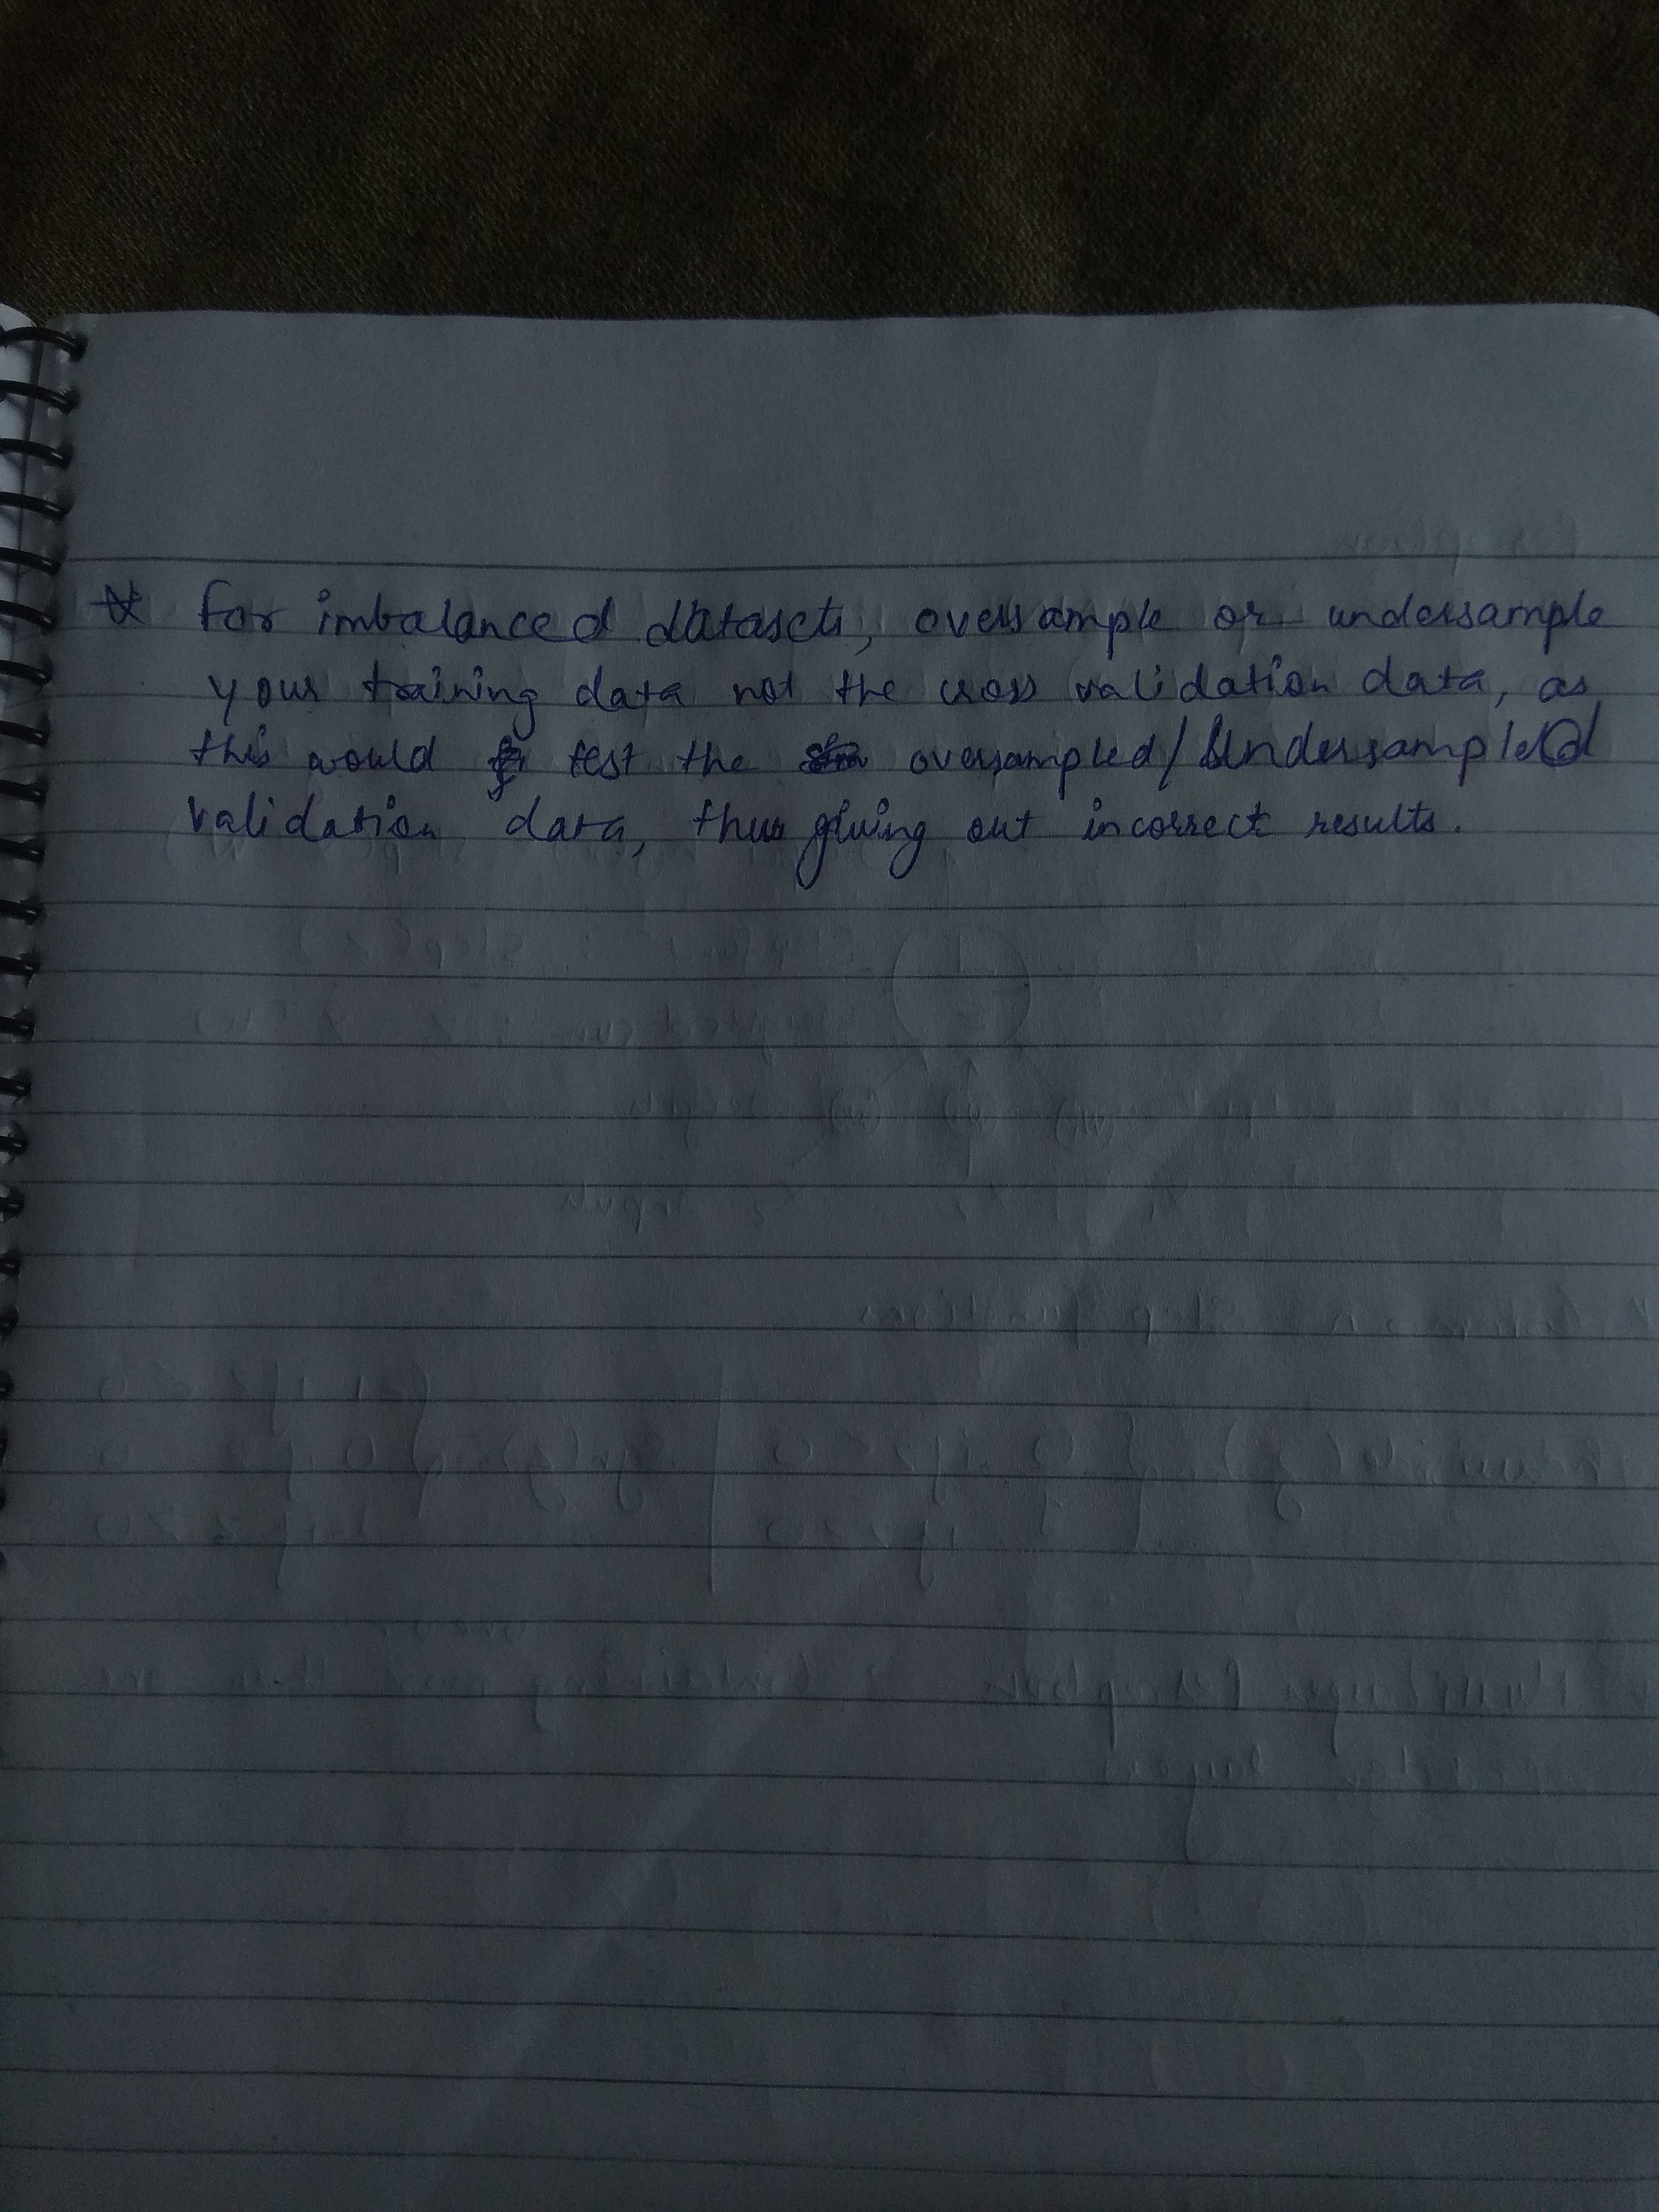 * For imbalanced datasets, oversample or undersample
your training data not the cross validation data, as
this would test the oversampled/Undersampled
validation data, thus giving out incorrect results.